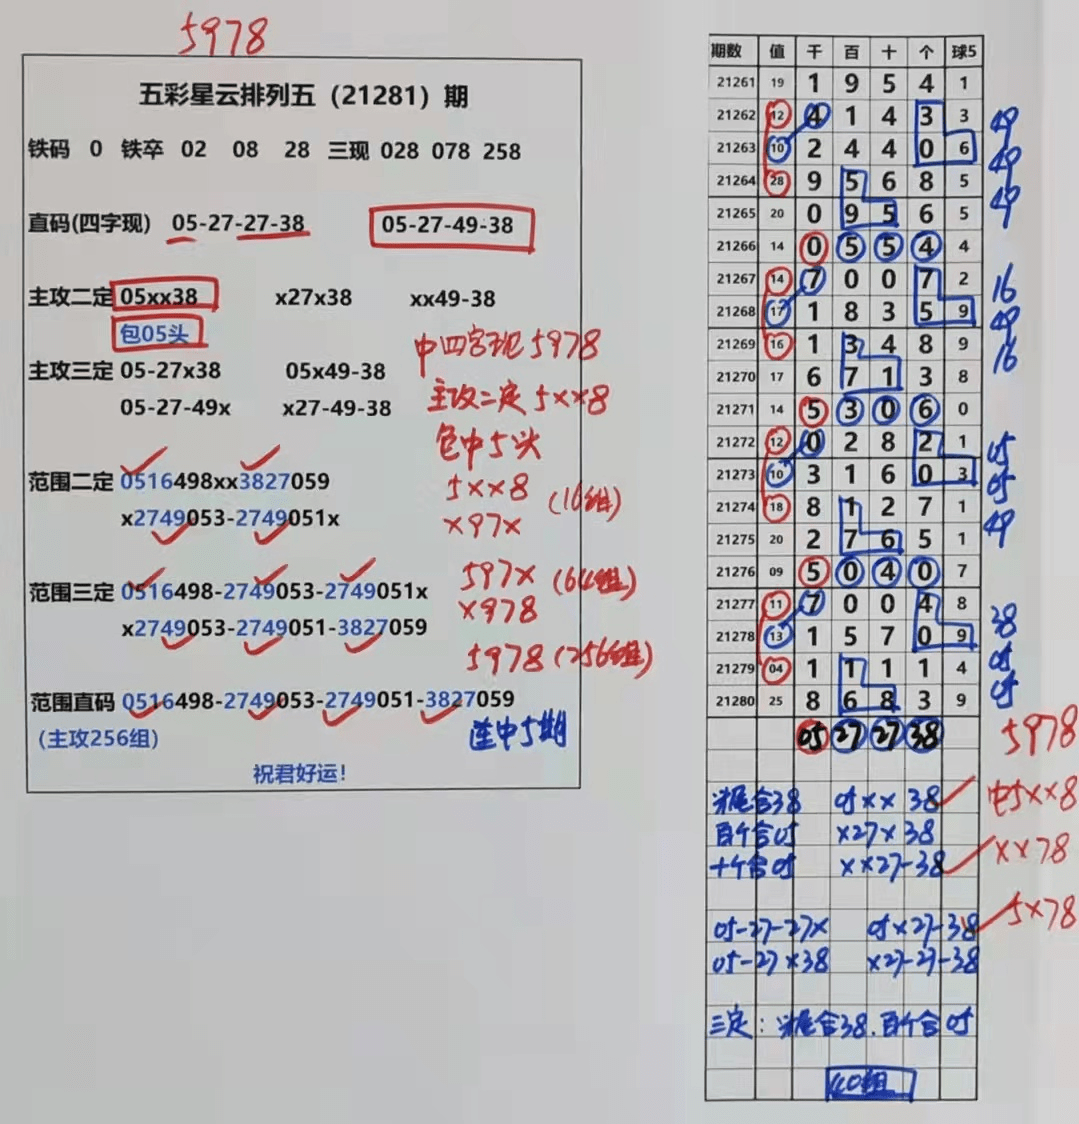 5978
五彩星云排列五（21281）期
铁码 0 铁卒 02 08 28 三现 028 078 258
直码(四字现) 05-27-27-38 05-27-49-38
主攻二定 05xx38 x27x38 xx49-38
包05头
中四字现5978
主攻三定 05-27x38 05x49-38
主攻二定5xx8
05-27-49x x27-49-38
包中5头
范围二定 0516498xx3827059
5xx8 (16组)
x2749053-2749051x
x97x
范围三定 0516498-2749053-2749051x
597x (64组)
x2749053-2749051-3827059
x978
5978(256组)
范围直码 0516498-2749053-2749051-3827059
(主攻256组)
连中5期
祝君好运!
期数 值 千 百 十 个 球5
21261 19 1 9 5 4 1
21262 12 4 1 4 3 3 49
21263 10 2 4 4 0 6 49
21264 28 9 5 6 8 5 49
21265 20 0 9 5 6 5
21266 14 0 5 5 4 4
21267 14 7 0 0 7 2 16
21268 17 1 8 3 5 9 49
21269 16 1 3 4 8 9 16
21270 17 6 7 1 3 8
21271 14 5 3 0 6 0
21272 12 0 2 8 2 1 05
21273 10 3 1 6 0 3 05
21274 18 8 1 2 7 1 49
21275 20 2 7 6 5 1
21276 09 5 0 4 0 7
21277 11 7 0 0 4 8 38
21278 13 1 5 7 0 9 05
21279 04 1 1 1 1 4 05
21280 25 8 6 8 3 9
05 27 27 38 5978
合38 05xx 38 中5xx8
百个合05 x27x 38
十个合05 xx27-38 xx78
05-27-27x 05x27-38 5x78
05-27x38 x27-27-38
三定：合38.百个合05
40组